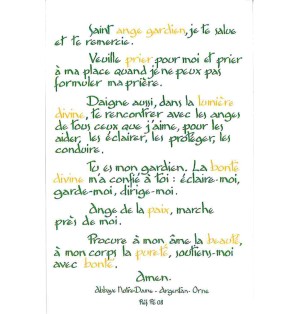 Saint ange gardien, je te salue
et te remercie.
Veuille prier pour moi et prier
à ma place quand je ne peux pas
formuler ma prière.
Daigne aussi, dans la lumière
divine, te rencontrer avec les anges
de tous ceux que j'aime, pour les
aider, les éclairer, les protéger, les
conduire.
Tu es mon gardien. La bonté
divine m'a confié à toi : éclaire-moi,
garde-moi, dirige-moi.
Ange de la paix, marche
près de moi.
Procure à mon âme la beauté,
à mon corps la pureté, soutiens-moi
avec bonté.
Amen.
Abbaye Notre-Dame - Argentan - Orne
Réf PE 08